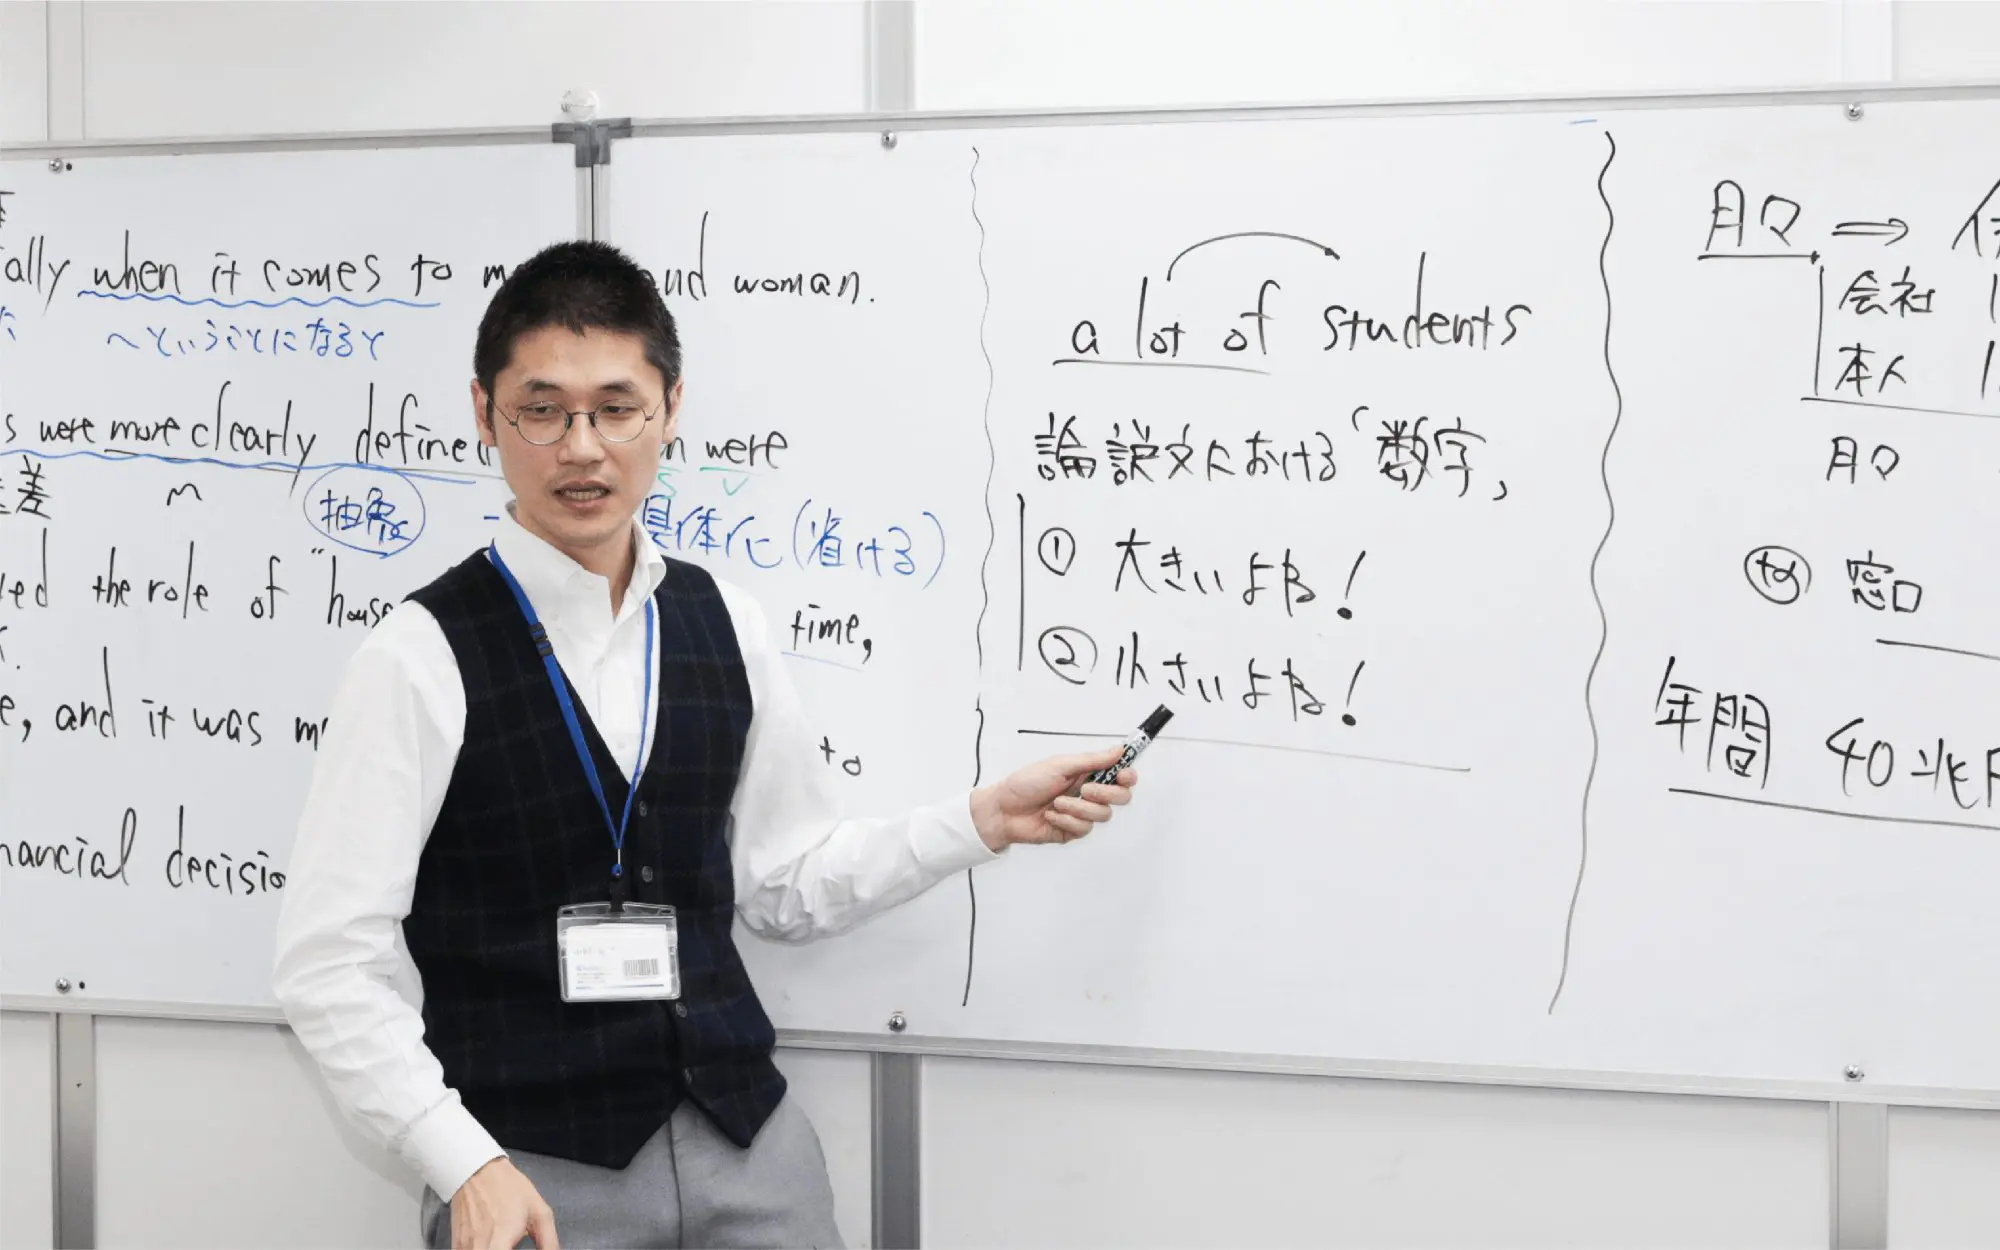 ally when it comes to m nd woman.
〜ということになると
s were more clearly define n were
差
抽象
具体化(省ける)
S V
ed the role of "hous time,
e, and it was m to
nancial decisio
a lot of students
論説文における「数字」
① 大きいよね!
② 小さいよね!
月々 ⇒
会社 1
本人 1
月々
窓口
年間 40兆円